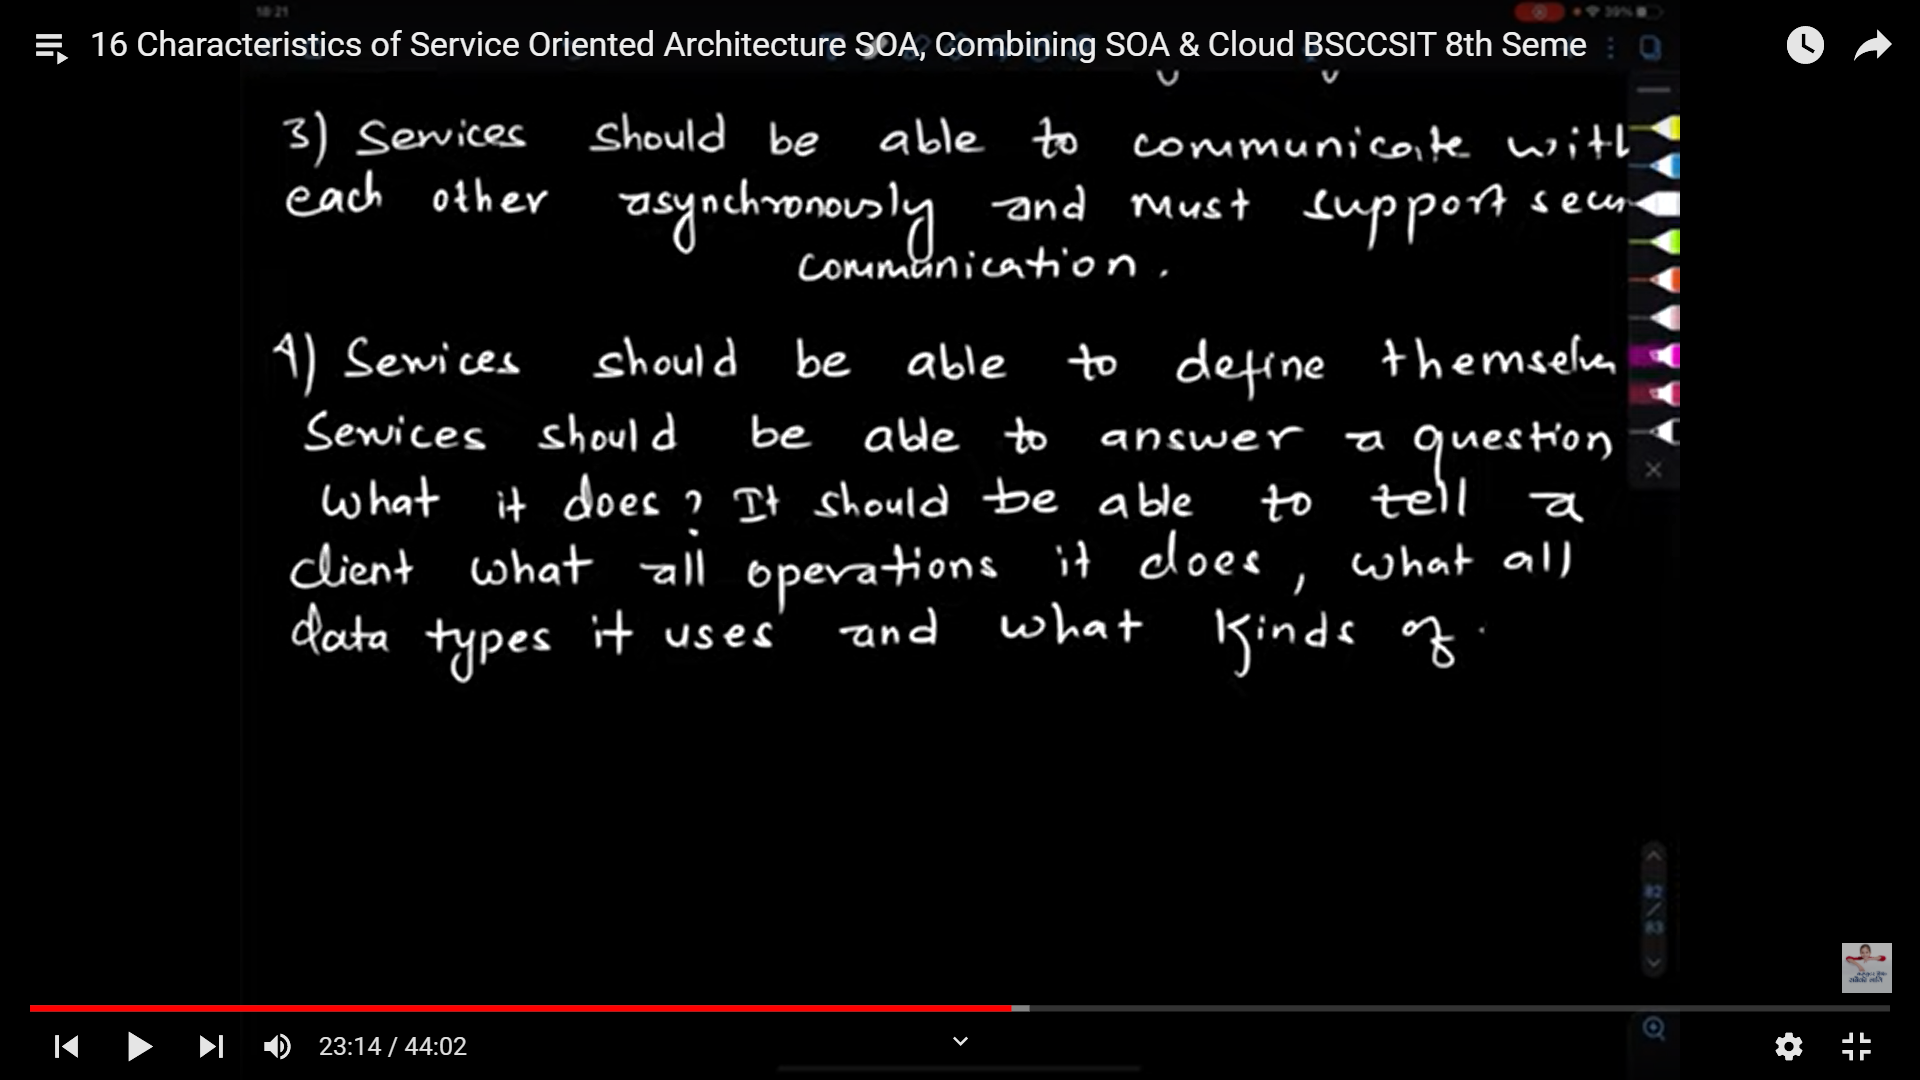 18:21
39%
16 Characteristics of Service Oriented Architecture SOA, Combining SOA & Cloud BSCCSIT 8th Seme
3) Services should be able to communicate with
each other asynchronously and must support secur
communication.
4) Services should be able to define themselv
Services should be able to answer a question
what it does? It should be able to tell a
client what all operations it does, what all
data types it uses and what kinds of
82
/
83
23:14 / 44:02